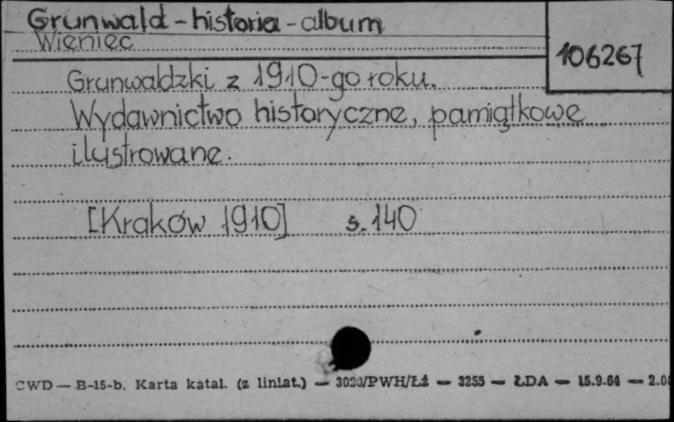 Grunwald - historia - album
Wieniec
106267
Grunwaldzki z 1910-go roku.
Wydawnictwo historyczne, pamiątkowe
ilustrowane.
[Kraków 1910] s. 140
CWD — B-15-b. Karta katal. (z liniat.) — 3020/PWH/Łź — 3255 — ŁDA — 15.9.64 — 2.0